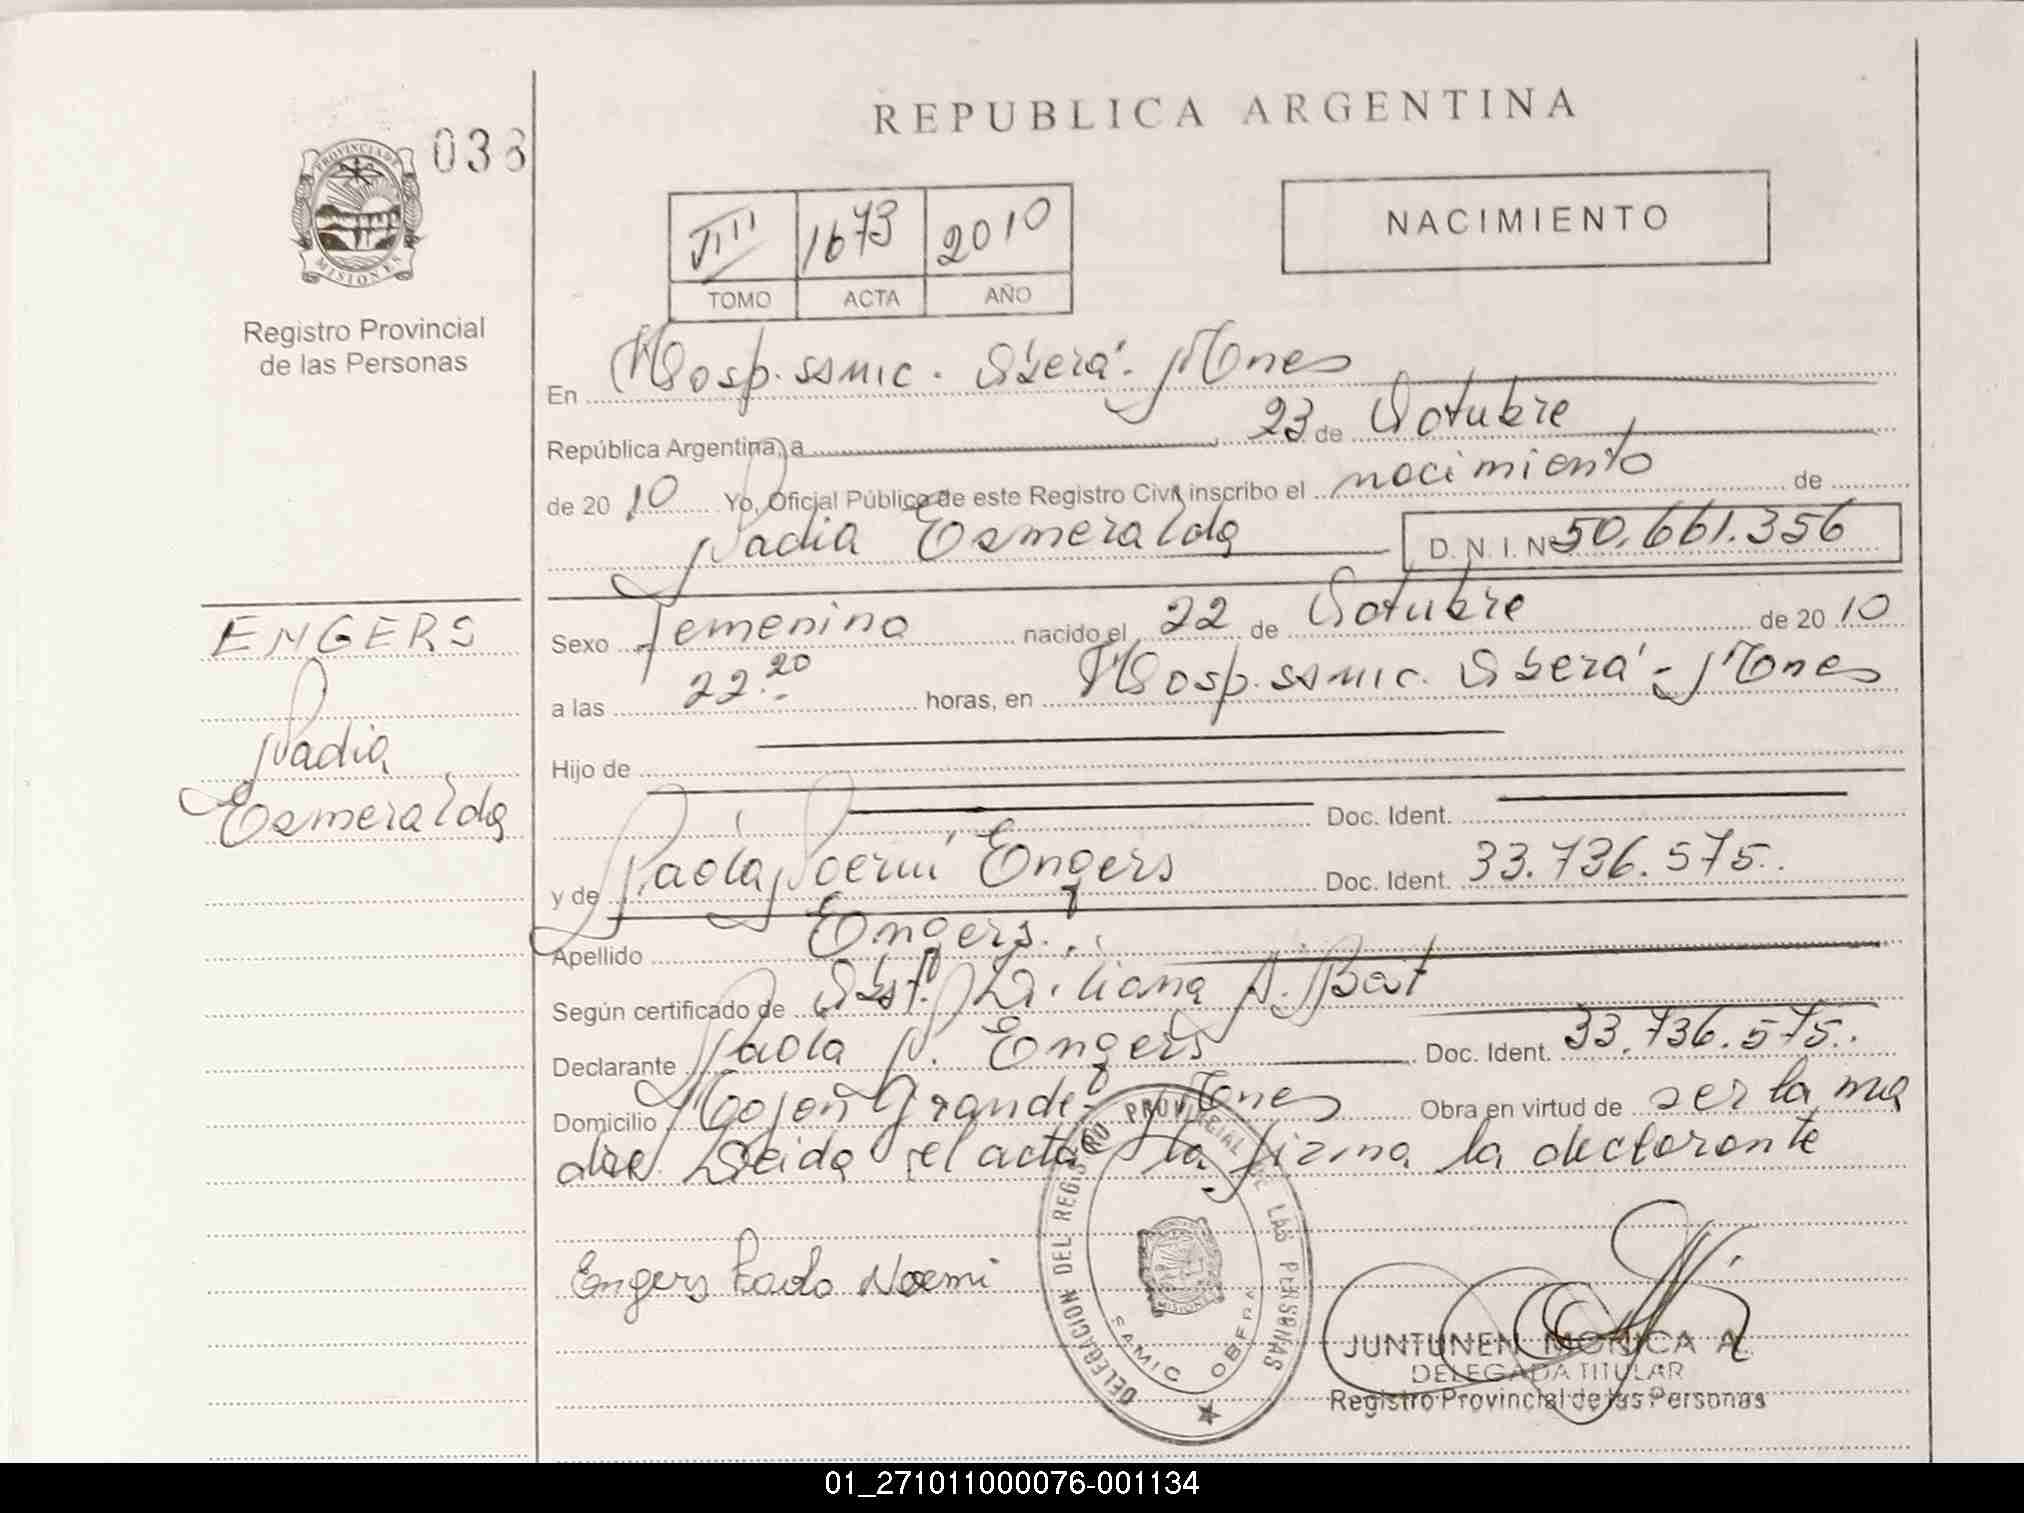 REPUBLICA ARGENTINA
PROVINCIA DE
MISIONES
038
Registro Provincial
de las Personas
1673 2010
TOMO ACTA AÑO
NACIMIENTO
En Hosp. SAMIC. Oberá - Mones
República Argentina, a 23 de Octubre
de 20 10 Yo, Oficial Público de este Registro Civil inscribo el nacimiento de
Nadia Esmeralda D. N. I. Nº 50.661.356
ENGERS
Nadia
Esmeralda
Sexo Femenino nacido el 22 de Octubre de 20 10
a las 22.20 horas, en Hosp. SAMIC. Oberá - Mones
Hijo de
Doc. Ident.
y de Paola Noemí Engers Doc. Ident. 33.736.575.
Apellido Engers.
Según certificado de Obst. Liliana A. Bait
Declarante Paola N. Engers Doc. Ident. 33.736.575.
Domicilio Mojón Grande - Mones Obra en virtud de ser la ma
dre. Leida el acta la firma la declarante
Engers Paola Noemi
DELEGACION DEL REGISTRO PROVINCIAL DE LAS PERSONAS
SAMIC OBERA
MISIONES
JUNTUNEN MONICA A.
DELEGADA TITULAR
Registro Provincial de las Personas
01_271011000076-001134